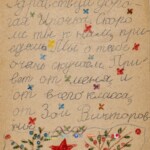 Здравствуй доро-
гой Илюша. Скоро
ли ты к нам при-
дешь. Мы о тебе
очень скучаем. При-
вет от меня и
от всего класса.
от Зои Викторов-